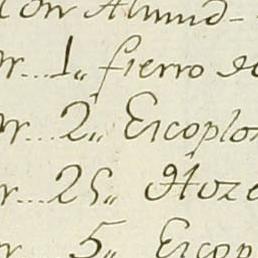 con Almud-
r... 1,, fierro
r... 2,, Escoplo
r... 25,, Hoze
r... 5,, Escop